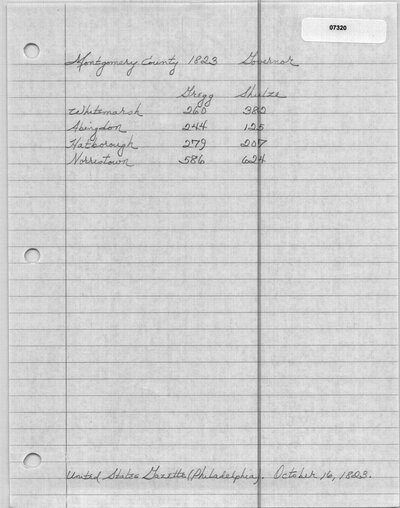 07320
Montgomery County 1823 Governor
Gregg Shulze
Whitemarsh 260 382
Abingdon 244 125
Hatborough 279 207
Norristown 586 624
United States Gazette (Philadelphia). October 16, 1823.